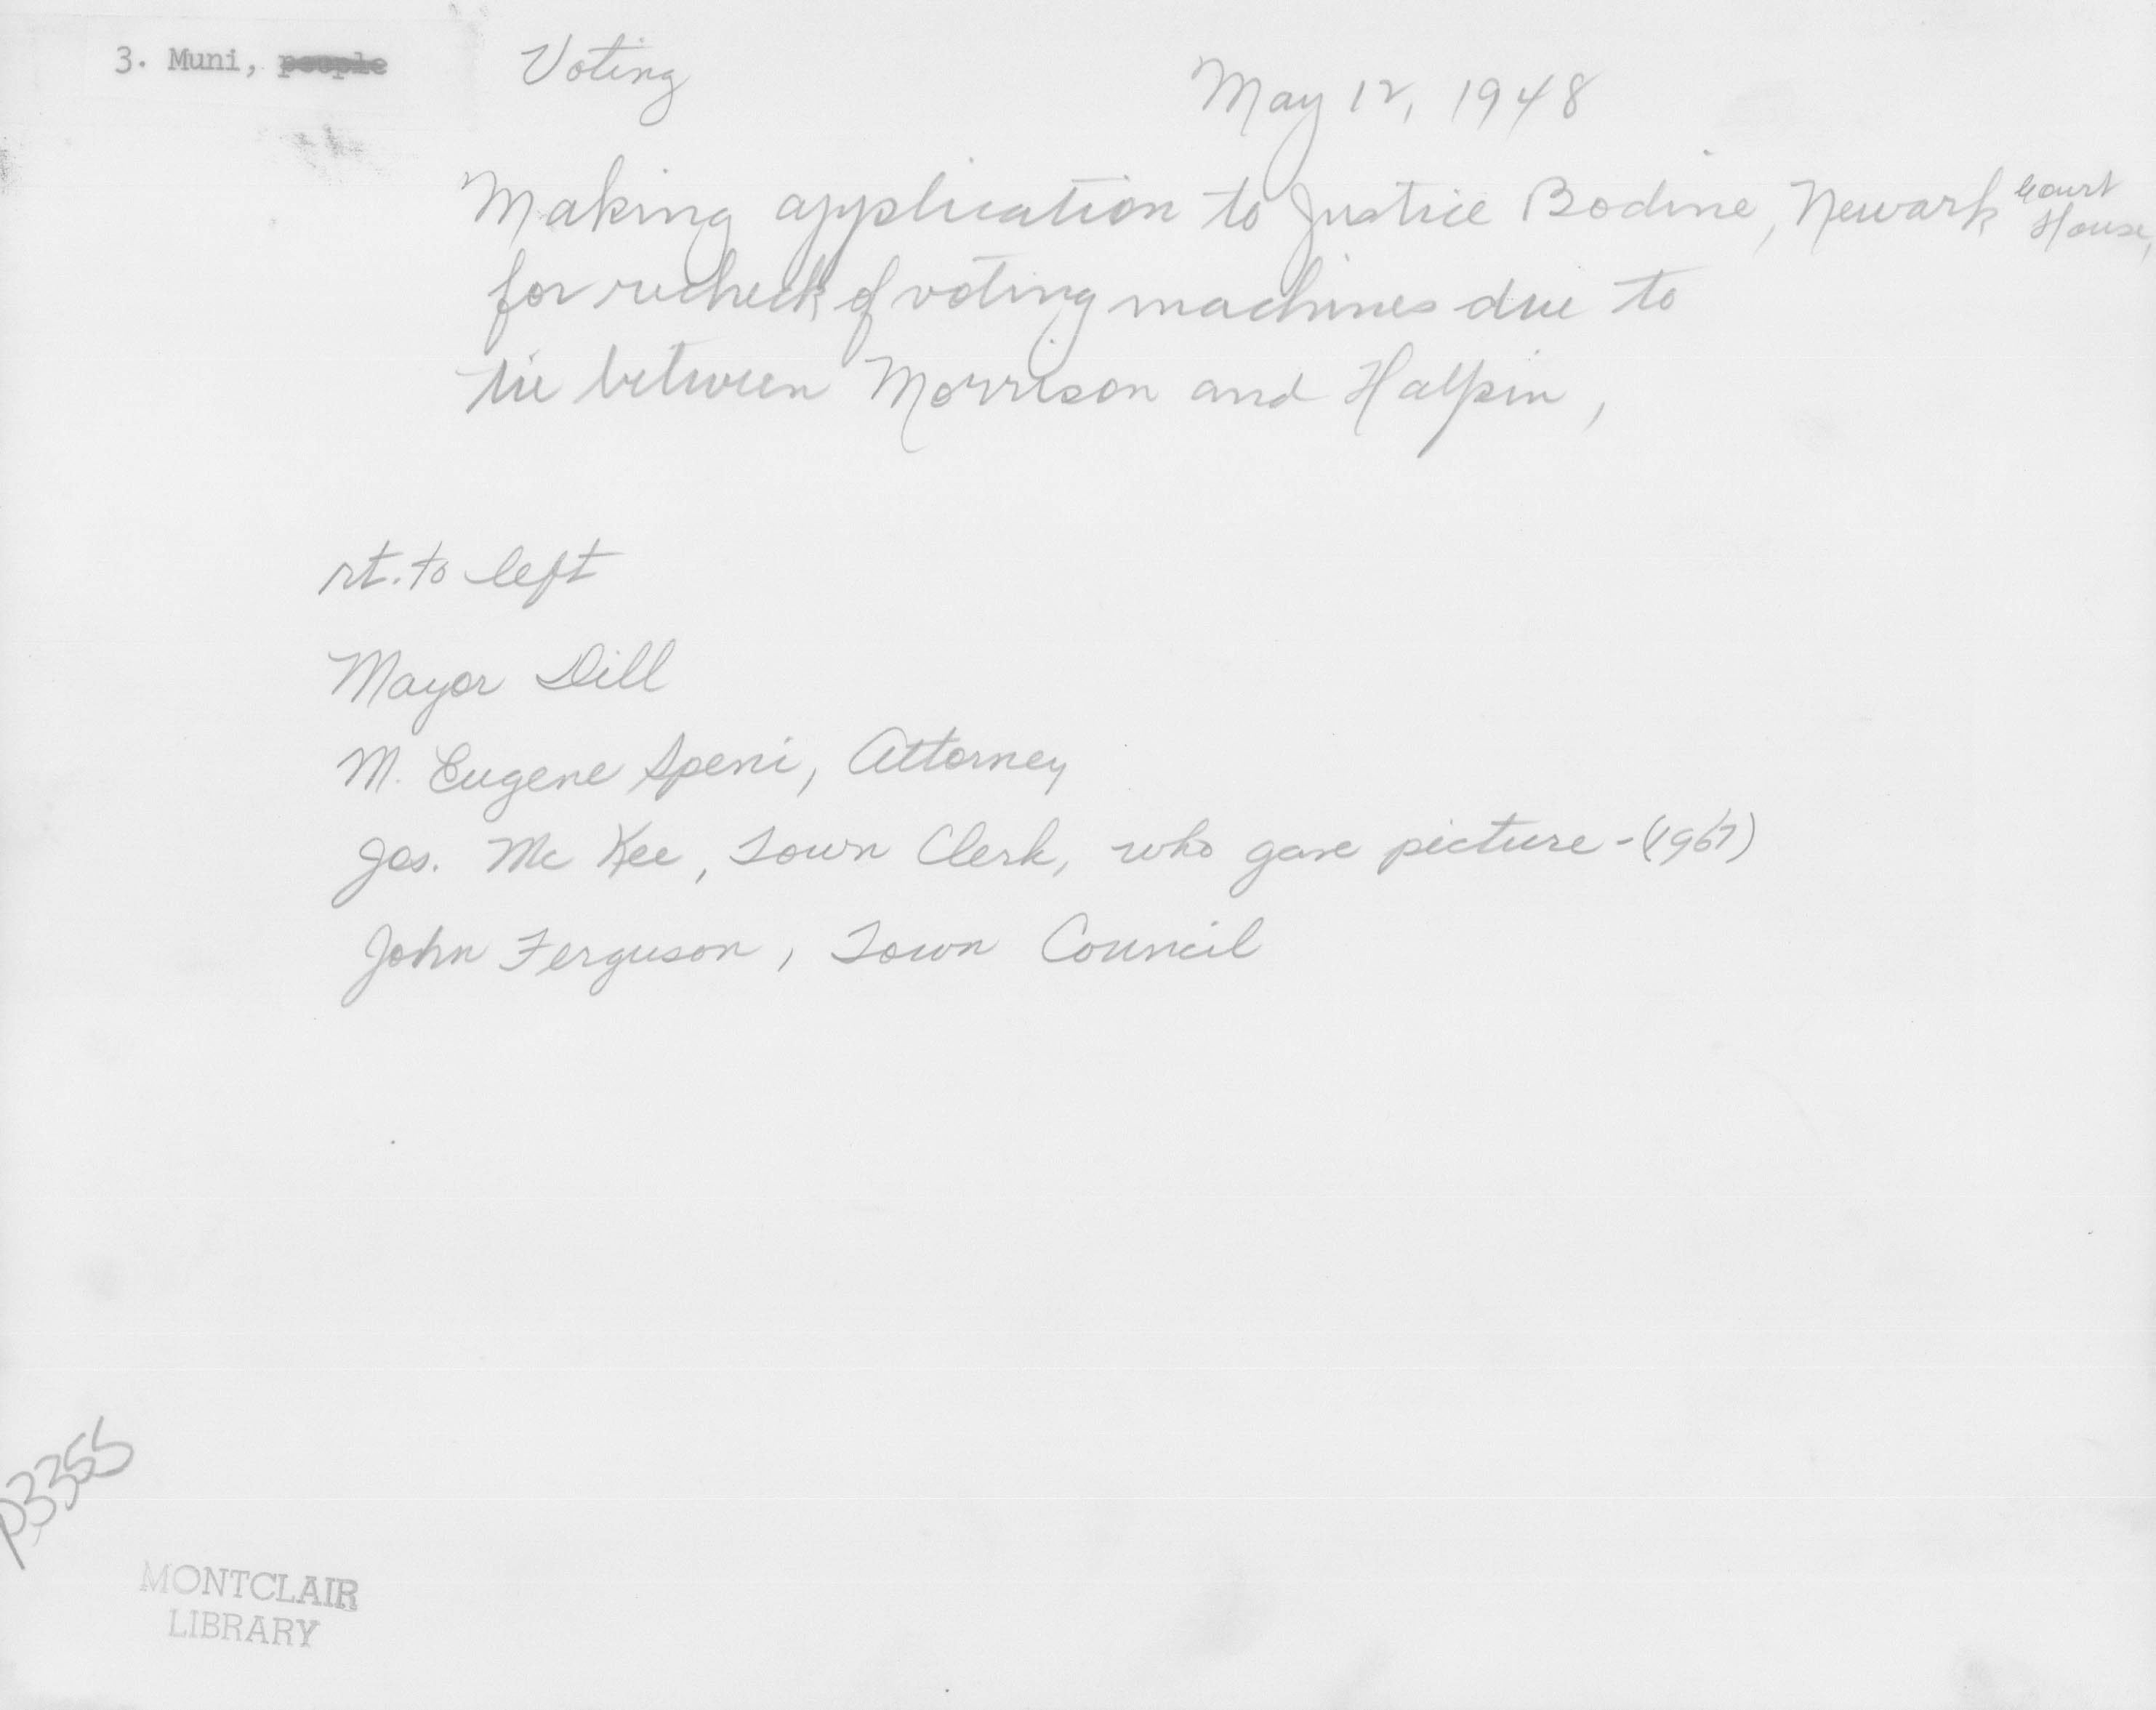 3. Muni, people Voting May 12, 1948
Making application to Justice Bodine, Newark Court House,
for recheck of voting machines due to
tie between Morrison and Halpin,
rt. to left
Mayor Dill
M. Eugene Speni, Attorney
Jas. Mc Kee, Town Clerk, who gave picture - (1967)
John Ferguson, Town Council
p3355
MONTCLAIR
LIBRARY